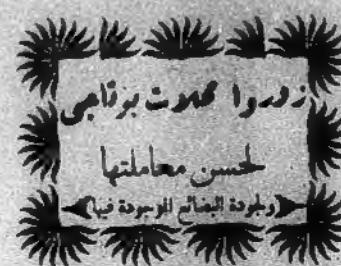 زوروا محلات برناجي
لحسن معاملتها
(ولجودة البضائع الموجودة فيها)